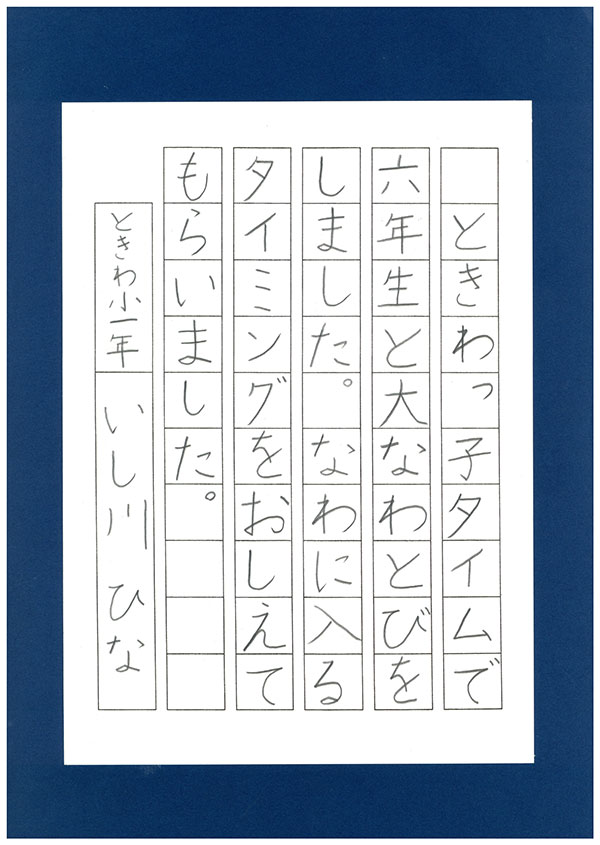 ときわっ子タイムで
六年生と大なわとびを
しました。なわに入る
タイミングをおしえて
もらいました。
ときわ小一年　いし川　ひな